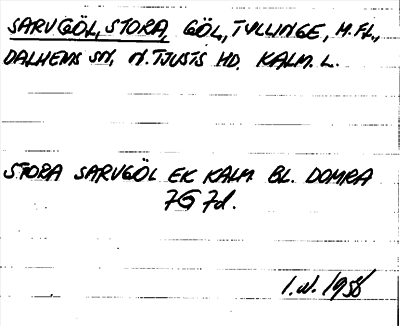 SARVGÖL, STORA, GÖL, TYLLINGE, M.FL.,
DALHEMS SN, N. TJUSTS HD. KALM. L.
STORA SARVGÖL EK KALM BL. DOMRA
7G 7d.
I.N. 1958